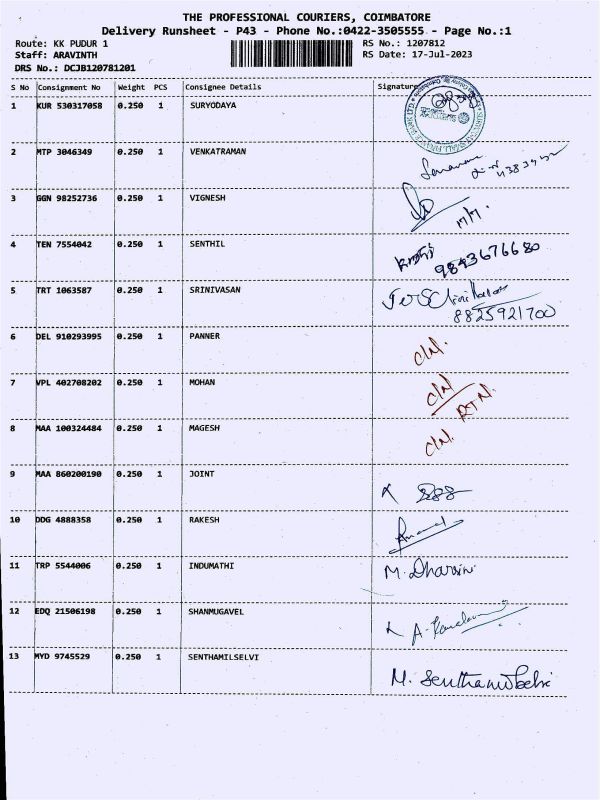 THE PROFESSIONAL COURIERS, COIMBATORE
Delivery Runsheet - P43 - Phone No.:0422-3505555 - Page No.:1
Route: KK PUDUR 1 RS No.: 1207812
Staff: ARAVINTH RS Date: 17-Jul-2023
DRS No.: DCJB120781201
S No Consignment No Weight PCS Consignee Details Signature
1 KUR 530317058 0.250 1 SURYODAYA
2 MTP 3046349 0.250 1 VENKATRAMAN
3 GGN 98252736 0.250 1 VIGNESH
17/7.
4 TEN 7554042 0.250 1 SENTHIL
9843676680
5 TRT 1063587 0.250 1 SRINIVASAN
8825921700
6 DEL 910293995 0.250 1 PANNER C/N.
7 VPL 402708202 0.250 1 MOHAN C/N
RTN.
8 MAA 100324484 0.250 1 MAGESH C/N.
9 MAA 860200190 0.250 1 JOINT
10 DDG 4888358 0.250 1 RAKESH
11 TRP 5544006 0.250 1 INDUMATHI M. Dharsini
12 EDQ 21506198 0.250 1 SHANMUGAVEL
13 MYD 9745529 0.250 1 SENTHAMILSELVI M. Senthamilselvi